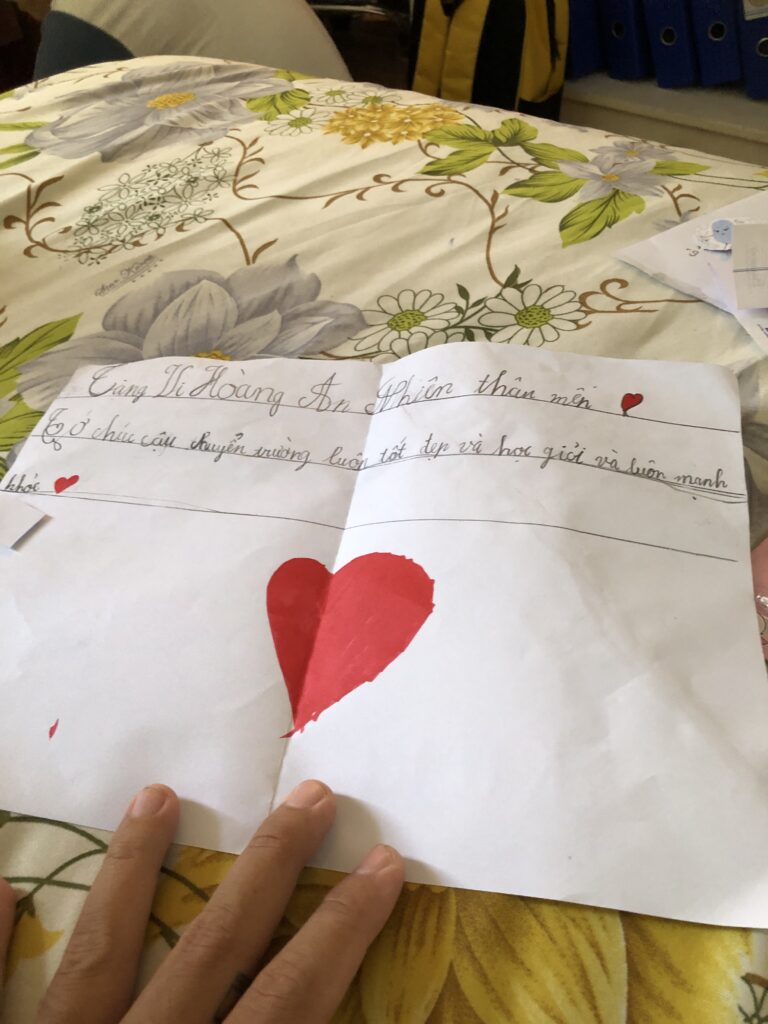 Tăng Vi Hoàng An Nhiên thân mến
Tớ chúc cậu chuyển trường luôn tốt đẹp và học giỏi và luôn mạnh
khỏe